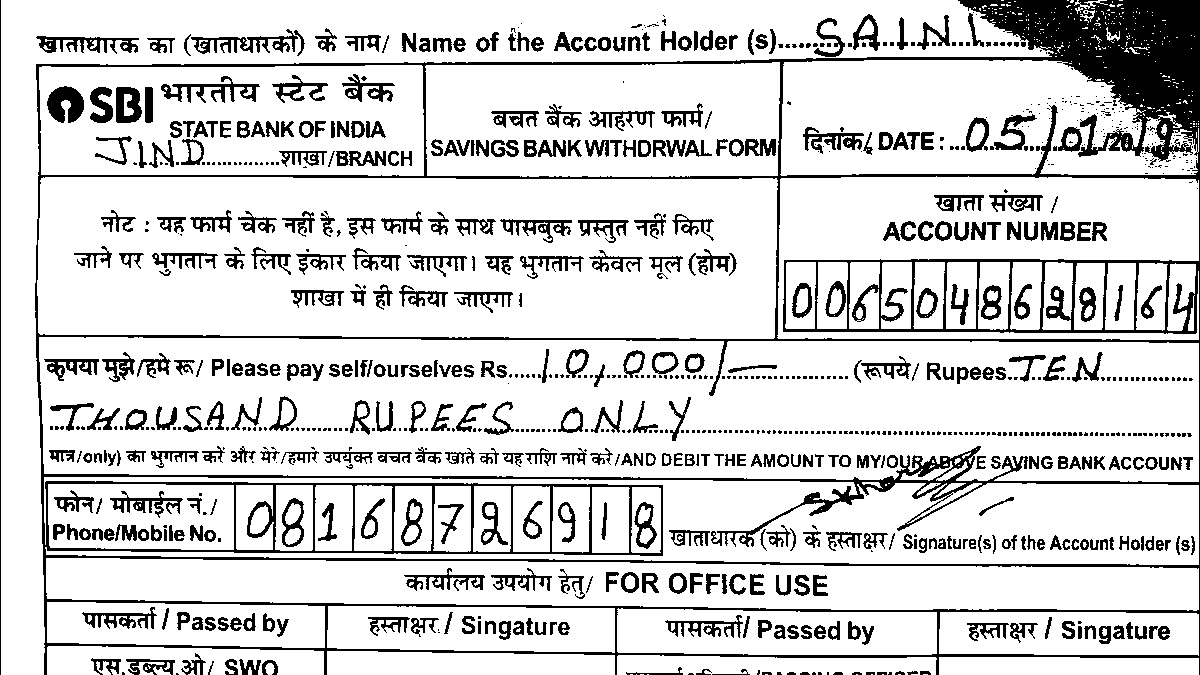 खाताधारक का (खाताधारकों) के नाम/ Name of the Account Holder (s)......SAINI
SBI भारतीय स्टेट बैंक
STATE BANK OF INDIA
JIND............शाखा/BRANCH
बचत बैंक आहरण फार्म/
SAVINGS BANK WITHDRWAL FORM
दिनांक/ DATE : ...05/01/2019
नोट : यह फार्म चेक नहीं है, इस फार्म के साथ पासबुक प्रस्तुत नहीं किए
जाने पर भुगतान के लिए इंकार किया जाएगा। यह भुगतान केवल मूल (होम)
शाखा में ही किया जाएगा।
खाता संख्या /
ACCOUNT NUMBER
0065048628164
कृपया मुझे/हमे रू/ Please pay self/ourselves Rs....10,000/- ............(रूपये/ Rupees TEN
THOUSAND RUPEES ONLY
मात्र/only) का भुगतान करें और मेरे/हमारे उपर्युक्त बचत बैंक खाते को यह राशि नामें करे/AND DEBIT THE AMOUNT TO MY/OUR ABOVE SAVING BANK ACCOUNT
फोन/ मोबाईल नं./
Phone/Mobile No. 08168726918
खाताधारक (को) के हस्ताक्षर/ Signature(s) of the Account Holder (s)
कार्यालय उपयोग हेतु/ FOR OFFICE USE
पासकर्ता / Passed by हस्ताक्षर / Singature पासकर्ता/ Passed by हस्ताक्षर / Singature
एस.डब्ल्यू.ओ/ SWO